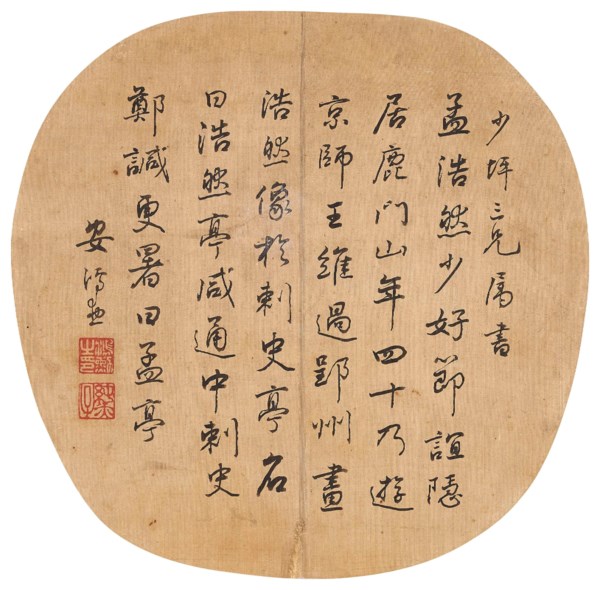 少坪三兄属書
孟浩然少好節誼隱
居鹿門山年四十乃遊
京師王維過郢州畫
浩然像於刺史亭名
曰浩然亭咸通中刺史
鄭諴更署曰孟亭
安